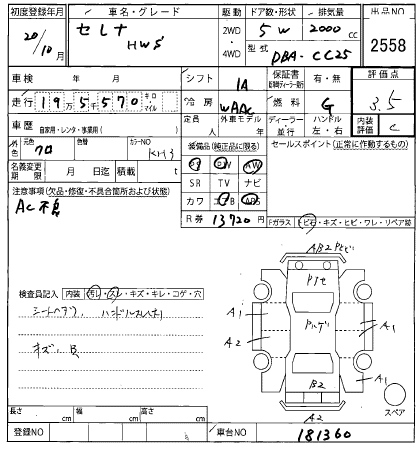 初度登録年月 車名・グレード 駆動 ドア数・形状 排気量 出品NO
20/10月 セレナ HWS 2WD・4WD 5W 2000cc 2558
型式 DBA-CC25
車検 年 月 シフト IA 保証書 有・無 評価点
走行 19万5千570 キロ・マイル 冷房 WAAC 燃料 G 3.5
車歴 自家用・レンタ・事業用( ) 定員 人 外車モデル 年 ディーラー・並行 ハンドル 左・右 内装評価 C
外色 元色 クロ 色替 カラーNO KH3 装備品(純正品に限る) セールスポイント(正常に作動するもの)
名義変更期限 月 日迄 積載 t PS PW AW
SR TV ナビ
注意事項(欠品・修復・不具合箇所および状態) カワ エアB ABS
AC不良 R券 13720円 Fガラス トビ石・キズ・ヒビ・ワレ・リペア跡
AB2 Pトビ
Pソセ
検査員記入 内装 汚レ・スレ・キズ・キレ・コゲ・穴 A1
シートヘタリ ハンドルスレ
A2 A1
キズ・凹
B2 A1
A2 スペア
長さ cm 幅 cm 高さ cm
登録NO 車台NO 181360